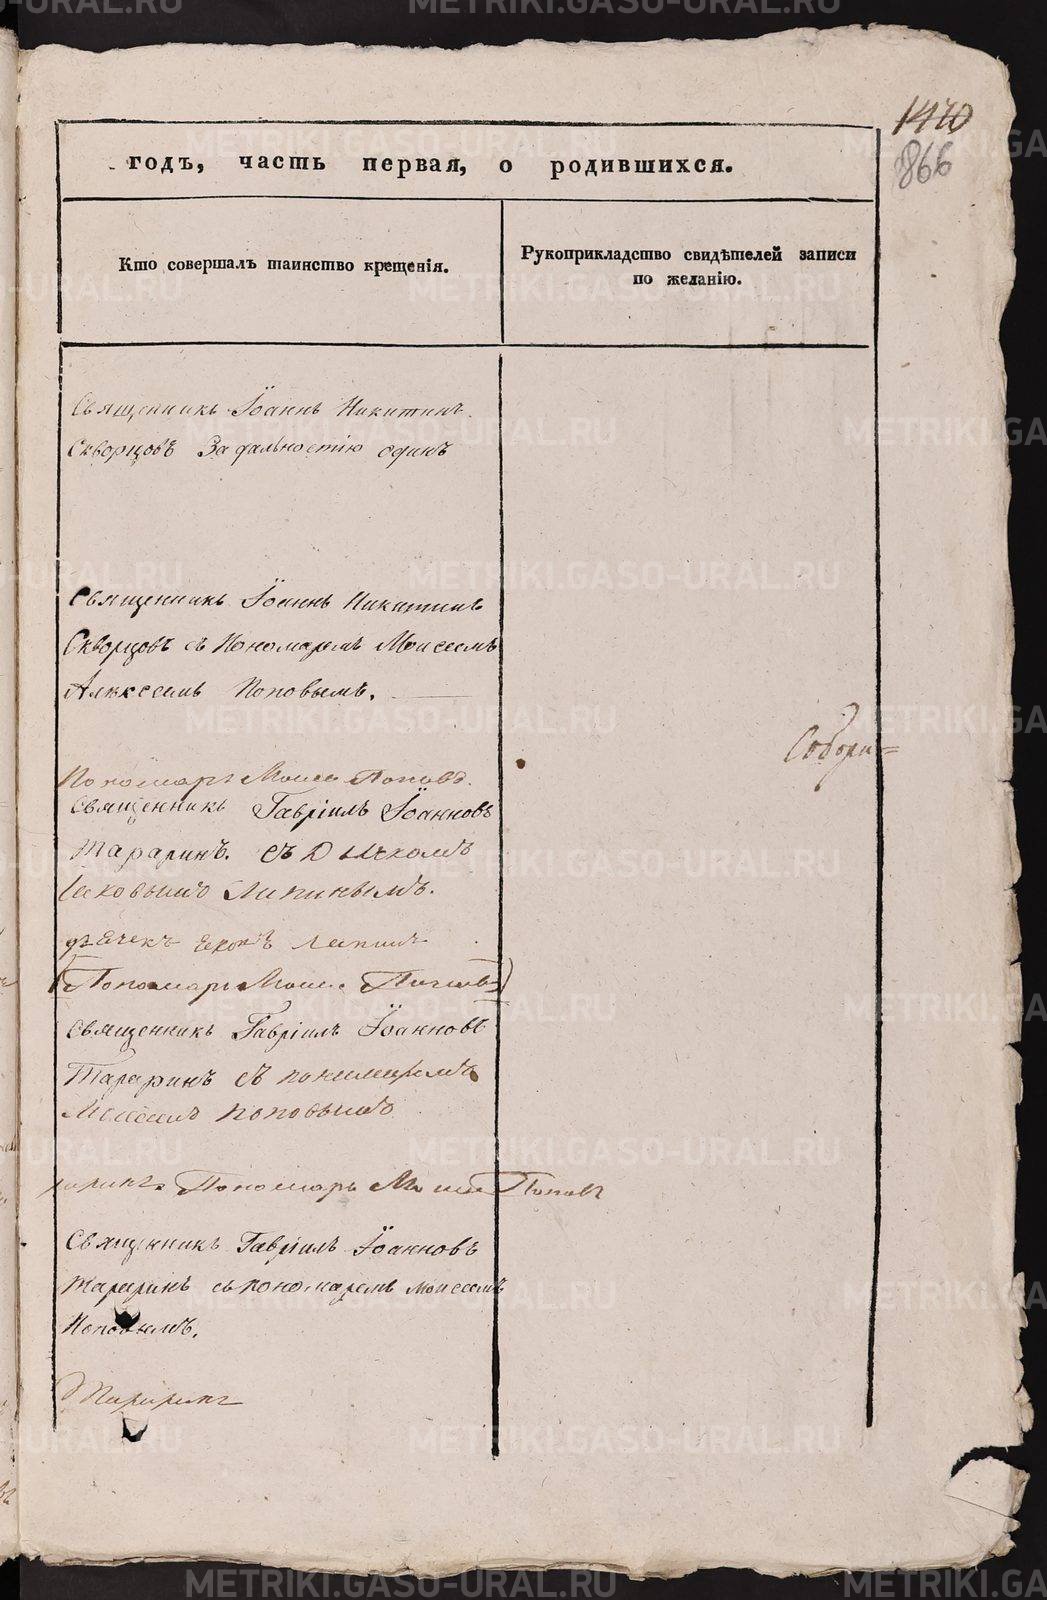 1470
866
годъ, часть первая, о родившихся.
Кто совершалъ таинство крещенія.
Рукоприкладство свидѣтелей записи
по желанію.
Священникъ Іоаннъ Никитинъ
Скворцовъ За дальностію одинъ
Священникъ Іоаннъ Никитинъ
Скворцовъ съ Пономаремъ Моисеемъ
Алексеемъ Поповымъ.
Собори=
Пономарь Моисей Поповъ.
Священникъ Гавріилъ Іоанновъ
Тараринъ. съ Дьячкомъ
Лапинымъ.
Лапинъ
(Пономарь Моисей Поповъ)
Священникъ Гавріилъ Іоанновъ
Тараринъ съ пономаремъ
Моисеемъ Поповымъ
Пономарь Моисей Поповъ
Священникъ Гавріилъ Іоанновъ
Тараринъ съ пономаремъ Моисеемъ
Поповымъ.
Тараринъ
METRIKI.GASO-URAL.RU